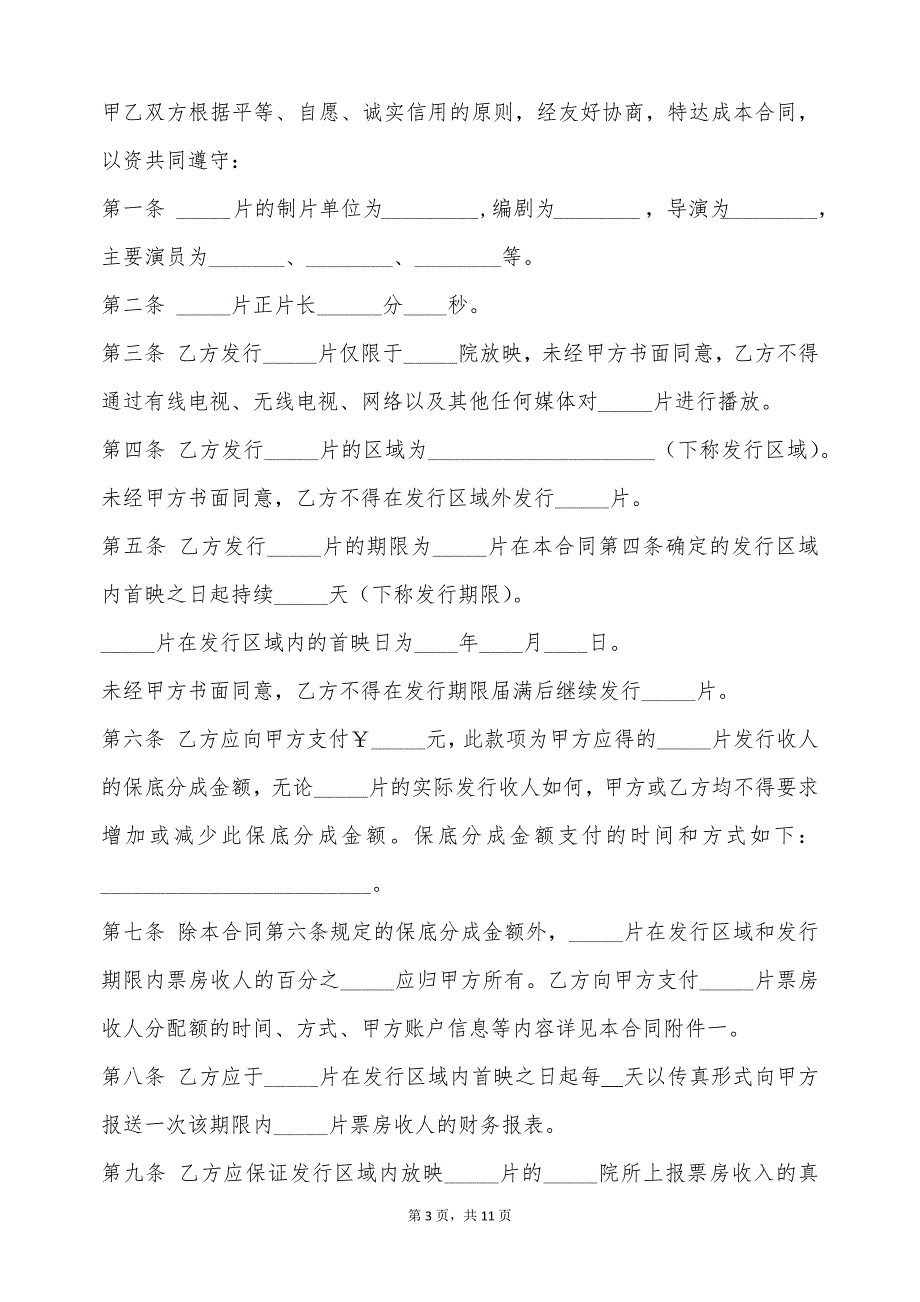 甲乙双方根据平等、自愿、诚实信用的原则，经友好协商，特达成本合同，
以资共同遵守：
第一条 _____片的制片单位为_________,编剧为________ ，导演为_________，
主要演员为_______、________、________等。
第二条 _____片正片长______分____秒。
第三条 乙方发行_____片仅限于_____院放映，未经甲方书面同意，乙方不得
通过有线电视、无线电视、网络以及其他任何媒体对_____片进行播放。
第四条 乙方发行_____片的区域为_____________________（下称发行区域）。
未经甲方书面同意，乙方不得在发行区域外发行_____片。
第五条 乙方发行_____片的期限为_____片在本合同第四条确定的发行区域
内首映之日起持续_____天（下称发行期限）。
_____片在发行区域内的首映日为____年____月____日。
未经甲方书面同意，乙方不得在发行期限届满后继续发行_____片。
第六条 乙方应向甲方支付￥_____元，此款项为甲方应得的_____片发行收人
的保底分成金额，无论_____片的实际发行收人如何，甲方或乙方均不得要求
增加或减少此保底分成金额。保底分成金额支付的时间和方式如下：
_________________________。
第七条 除本合同第六条规定的保底分成金额外，_____片在发行区域和发行
期限内票房收人的百分之_____应归甲方所有。乙方向甲方支付_____片票房
收人分配额的时间、方式、甲方账户信息等内容详见本合同附件一。
第八条 乙方应于_____片在发行区域内首映之日起每__天以传真形式向甲方
报送一次该期限内_____片票房收人的财务报表。
第九条 乙方应保证发行区域内放映_____片的_____院所上报票房收入的真
第 3 页，共 11 页